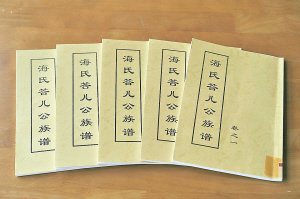 海氏答儿公族谱
海氏答儿公族谱
海氏答儿公族谱
海氏答儿公族谱
海氏答儿公族谱
卷之一